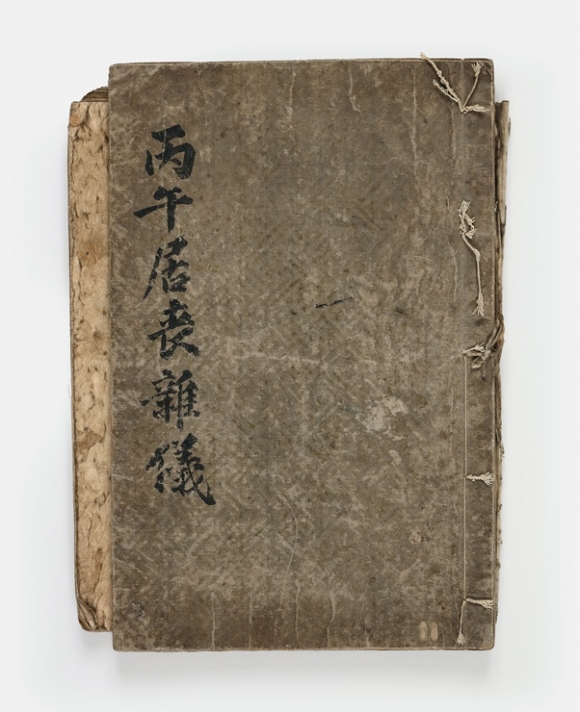 丙午居喪雜儀